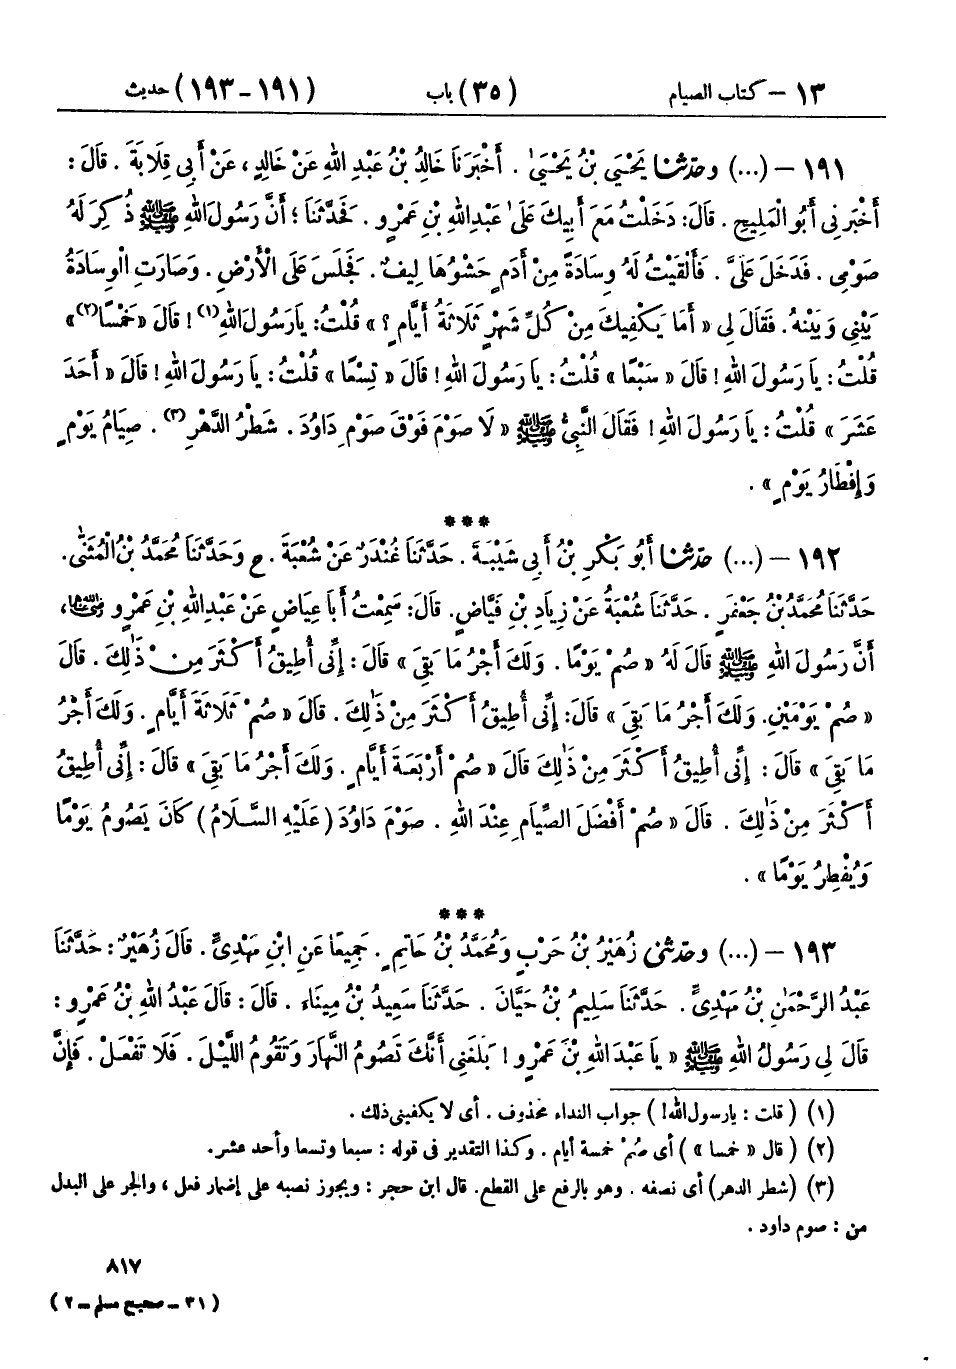 ١٣ – كتاب الصيام (٣٥) باب (١٩١ – ١٩٣) حديث
١٩١ – (...) وحَدَّثَنَا يَحْيَى بْنُ يَحْيَىٰ . أَخْبَرَنَا خَالِدُ بْنُ عَبْدِ اللهِ عَنْ خَالِدٍ ، عَنْ أَبِى قِلَابَةَ . قَالَ :
أَخْبَرَنِى أَبُو الْمَلِيحِ . قَالَ : دَخَلْتُ مَعَ أَبِيكَ عَلَىٰ عَبْدِ اللهِ بْنِ عَمْرٍو . فَحَدَّثَنَا ؛ أَنَّ رَسُولَ اللهِ ﷺ ذُكِرَ لَهُ
صَوْمِى . فَدَخَلَ عَلَىَّ . فَأَلْقَيْتُ لَهُ وِسَادَةً مِنْ أَدَمٍ حَشْوُهَا لِيفٌ . فَجَلَسَ عَلَى الْأَرْضِ . وَصَارَتِ الْوِسَادَةُ
بَيْنِى وَبَيْنَهُ . فَقَالَ لِى « أَمَا يَكْفِيكَ مِنْ كُلِّ شَهْرٍ ثَلَاثَةُ أَيَّامٍ ؟ » قُلْتُ : يَا رَسُولَ اللهِ(١) ! قَالَ « خَمْسًا(٢) »
قُلْتُ : يَا رَسُولَ اللهِ ! قَالَ « سَبْعًا » قُلْتُ : يَا رَسُولَ اللهِ ! قَالَ « تِسْعًا » قُلْتُ : يَا رَسُولَ اللهِ ! قَالَ « أَحَدَ
عَشَرَ » قُلْتُ : يَا رَسُولَ اللهِ ! فَقَالَ النَّبِىُّ ﷺ « لَا صَوْمَ فَوْقَ صَوْمِ دَاوُدَ . شَطْرُ الدَّهْرِ(٣) . صِيَامُ يَوْمٍ
وَإِفْطَارُ يَوْمٍ » .
***
١٩٢ – (...) حَدَّثَنَا أَبُو بَكْرِ بْنُ أَبِى شَيْبَةَ . حَدَّثَنَا غُنْدَرٌ عَنْ شُعْبَةَ . ح وَحَدَّثَنَا مُحَمَّدُ بْنُ الْمُثَنَّى .
حَدَّثَنَا مُحَمَّدُ بْنُ جَعْفَرٍ . حَدَّثَنَا شُعْبَةُ عَنْ زِيَادِ بْنِ فَيَّاضٍ . قَالَ : سَمِعْتُ أَبَا عِيَاضٍ عَنْ عَبْدِ اللهِ بْنِ عَمْرٍو رضي الله عنهما ،
أَنَّ رَسُولَ اللهِ ﷺ قَالَ لَهُ « صُمْ يَوْمًا . وَلَكَ أَجْرُ مَا بَقِىَ » قَالَ : إِنِّى أُطِيقُ أَكْثَرَ مِنْ ذَٰلِكَ . قَالَ
« صُمْ يَوْمَيْنِ . وَلَكَ أَجْرُ مَا بَقِىَ » قَالَ : إِنِّى أُطِيقُ أَكْثَرَ مِنْ ذَٰلِكَ . قَالَ « صُمْ ثَلَاثَةَ أَيَّامٍ . وَلَكَ أَجْرُ
مَا بَقِىَ » قَالَ : إِنِّى أُطِيقُ أَكْثَرَ مِنْ ذَٰلِكَ قَالَ « صُمْ أَرْبَعَةَ أَيَّامٍ . وَلَكَ أَجْرُ مَا بَقِىَ » قَالَ : إِنِّى أُطِيقُ
أَكْثَرَ مِنْ ذَٰلِكَ . قَالَ « صُمْ أَفْضَلَ الصِّيَامِ عِنْدَ اللهِ . صَوْمَ دَاوُدَ ( عَلَيْهِ السَّلَامُ ) كَانَ يَصُومُ يَوْمًا
وَيُفْطِرُ يَوْمًا » .
***
١٩٣ – (...) وحَدَّثَنِى زُهَيْرُ بْنُ حَرْبٍ وَمُحَمَّدُ بْنُ حَاتِمٍ . جَمِيعًا عَنِ ابْنِ مَهْدِىٍّ . قَالَ زُهَيْرٌ : حَدَّثَنَا
عَبْدُ الرَّحْمَٰنِ بْنُ مَهْدِىٍّ . حَدَّثَنَا سَلِيمُ بْنُ حَيَّانَ . حَدَّثَنَا سَعِيدُ بْنُ مِينَاءَ . قَالَ : قَالَ عَبْدُ اللهِ بْنُ عَمْرٍو :
قَالَ لِى رَسُولُ اللهِ ﷺ « يَا عَبْدَ اللهِ بْنَ عَمْرٍو ! بَلَغَنِى أَنَّكَ تَصُومُ النَّهَارَ وَتَقُومُ اللَّيْلَ . فَلَا تَفْعَلْ . فَإِنَّ
(١) ( قلت : يا رسول الله! ) جواب النداء محذوف . أى لا يكفينى ذلك .
(٢) ( قال « خمسا » ) أى صُمْ خمسة أيام . وكذا التقدير فى قوله : سبعا وتسعا وأحد عشر.
(٣) (شطر الدهر) أى نصفه . وهو بالرفع على القطع. قال ابن حجر : ويجوز نصبه على إضمار فعل ، والجر على البدل
من : صوم داود .
٨١٧
( ٣١ – صحيح مسلم – ٢ )